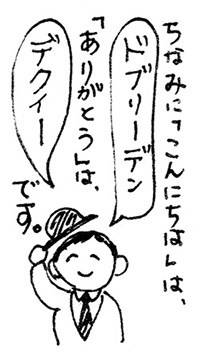 ちなみに「こんにちは」は、
ドブリーデン
「ありがとう」は、
デクィー
です。